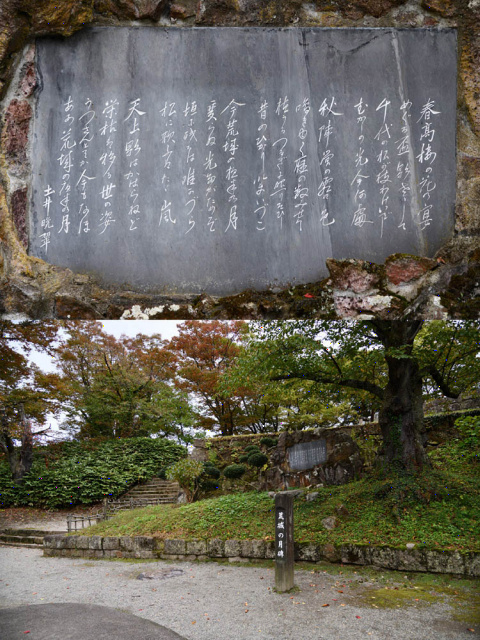 春高楼の花の宴
めぐる盃影さして
千代の松が枝わけいでし
むかしの光今何處
秋陣營の霜の色
啼き行く雁の數見せて
植うるつるぎに照りそひし
昔の光今いづこ
今荒城の夜半の月
變らぬ光たがためぞ
垣に残るは唯かづら
松に歌ふはたゞ嵐
天上影はかはらねど
榮枯は移る世の姿
うつさんとてか今もなほ
あゝ荒城の夜半の月
土井晩翠
荒城の月碑